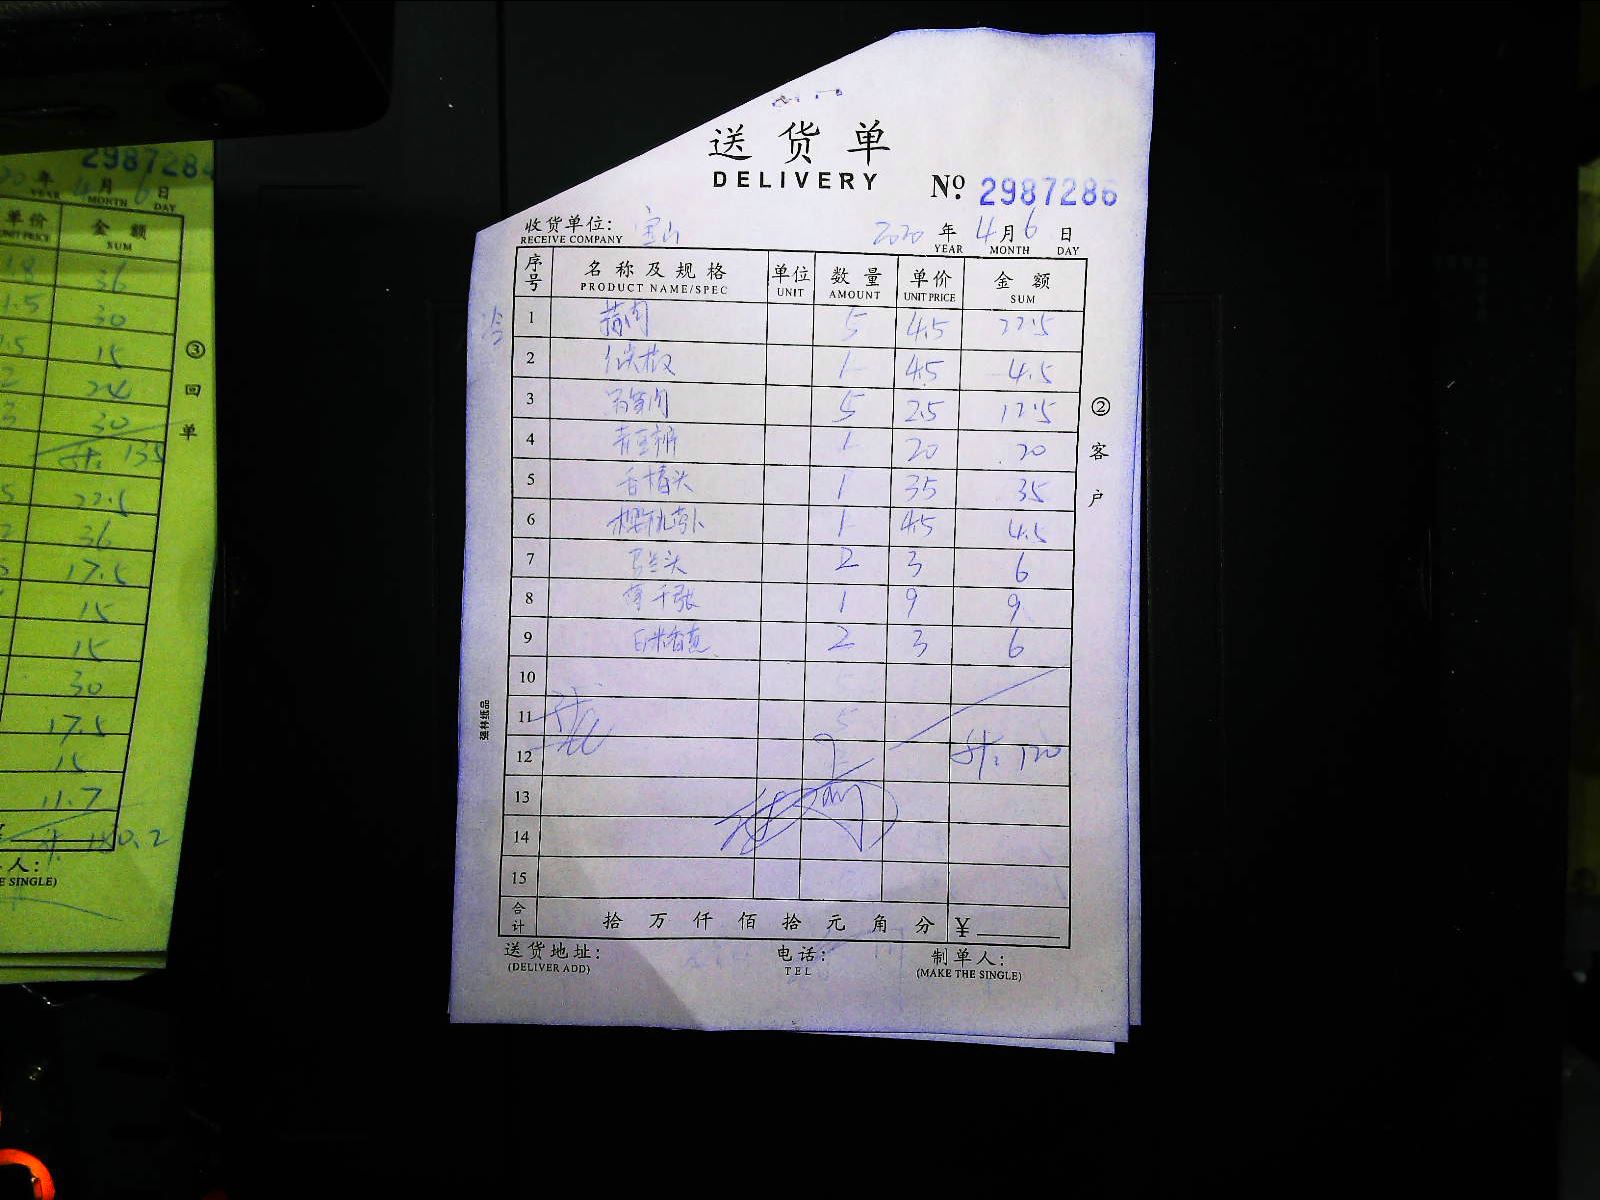 送货单
DELIVERY
№ 2987286
收货单位: 宝山 2020 年 4 月 6 日
RECEIVE COMPANY YEAR MONTH DAY
序号 名称及规格 单位 数量 单价 金额
PRODUCT NAME/SPEC UNIT AMOUNT UNIT PRICE SUM
冷
1 5 4.5 22.5
2 1 4.5 4.5
3 5 2.5 12.5
4 1 20 20
5 香椿头 1 35 35
6 樱桃萝卜 1 4.5 4.5
7 马兰头 2 3 6
8 薄千张 1 9 9
9 白米苋 2 3 6
10
11
12 计: 120
13
14
15
合计 拾 万 仟 佰 拾 元 角 分 ¥
送货地址: 电话: 制单人:
(DELIVER ADD) TEL (MAKE THE SINGLE)
②客户
强林纸品
2987284
20 年 4 月 6 日
YEAR MONTH DAY
单价 金额
UNIT PRICE SUM
18 36
1.5 30
15
24
30
计: 135
22.5
36
17.5
15
15
30
17.5
15
11.7
计 180.2
人:
E SINGLE)
③回单